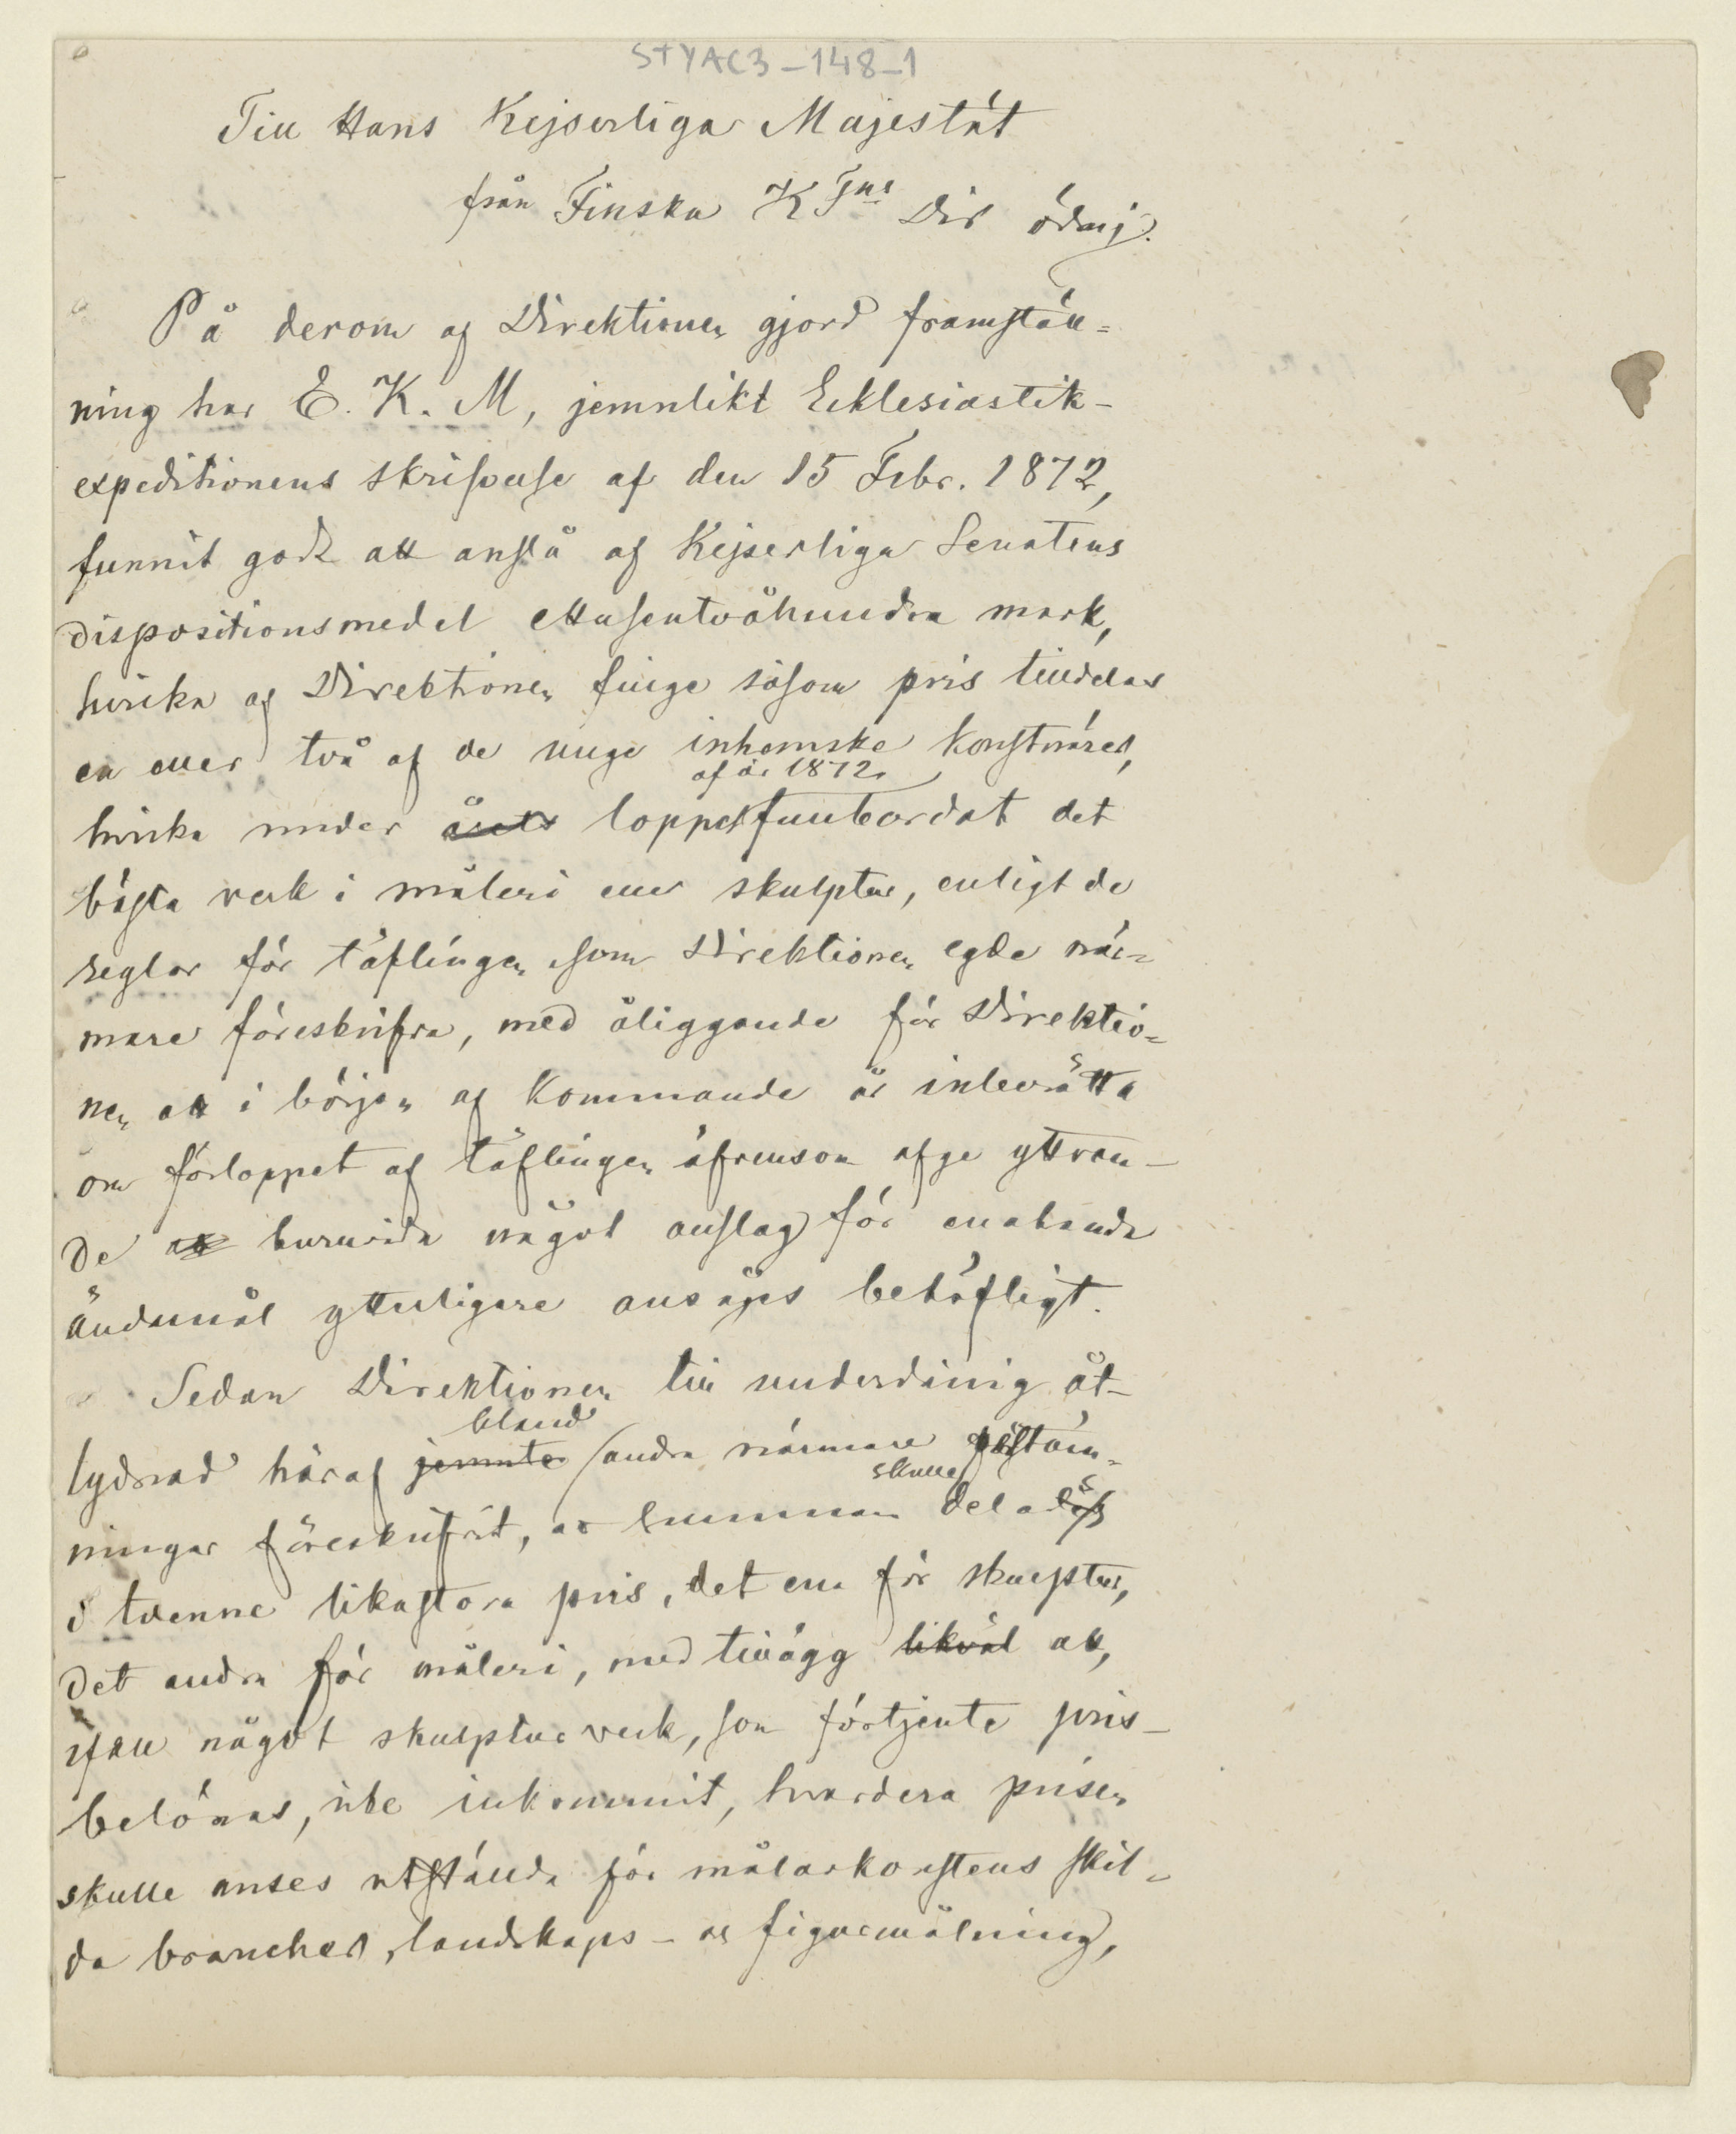 STYAC3-148-1
Till Hans Kejserliga Majestät
från Finska KFns Dir ödmj.
På derom af Direktionen gjord framställ=
ning har E. K. M, jemnlikt Ecklesiastik-
expeditionens skrifvelse af den 15 Febr. 1872,
funnit godt att anslå af Kejserliga Senatens
dispositionsmedel ettusentvåhundra mark,
hvilka af Direktionen finge såsom pris tilldelas
en eller två af de unge inhemske konstnärer,
af år 1872
hvilka under årets loppet fullbordat det
bästa verk i måleri eller skulptur, enligt de
reglor för täflingen som Direktionen egde när=
mare föreskrifva, med åliggande för Direktio=
nen att i början af kommande år inberätta
om förloppet af täflingen äfvensom afge yttran-
de att huruvida något anslag för enahanda
ändamål ytterligare ansåges behöfligt.
Sedan Direktionen till underdånig åt-
bland
lydnad häraf jemnte andra närmare bestäm=
skulle
ningar föreskrifvit, att summan delades
i tvenne likastora pris, det ena för skulptur,
det andra för måleri, med tillägg likväl att,
ifall något skulpturverk, som förtjente pris-
belönas, icke inkommit, hvardera prisen
skulle anses utstälda för målarkonstens skil=
da brancher, landskaps- och figurmålning,